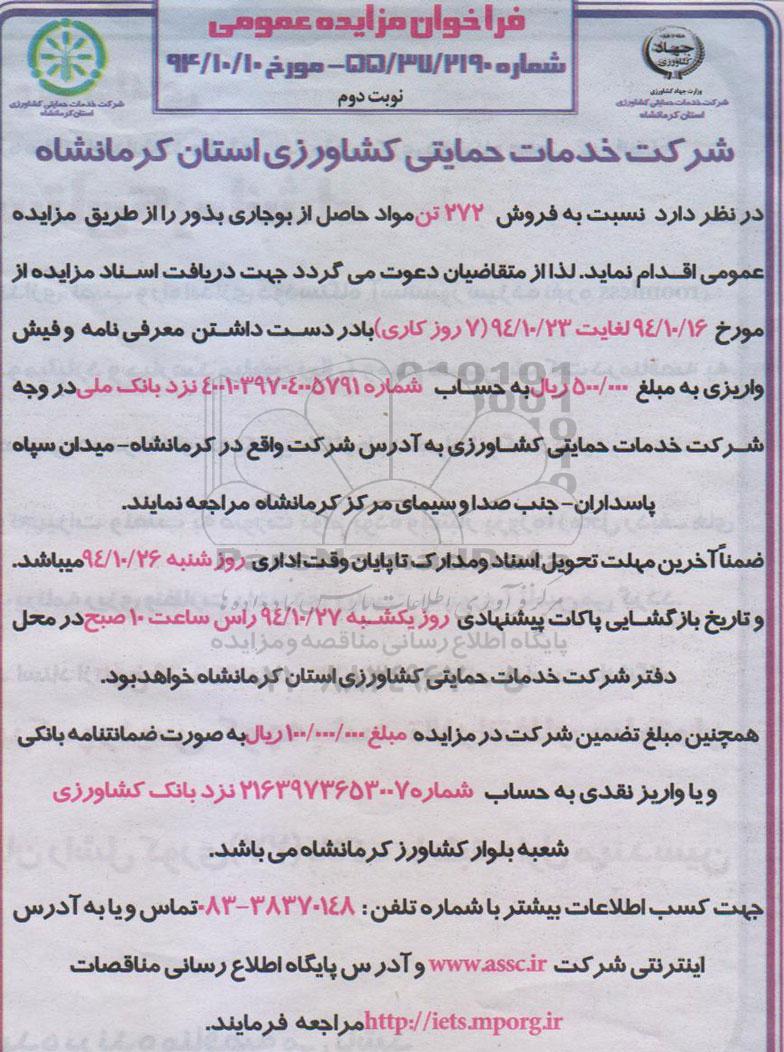 فراخوان مزایده عمومی
شماره ۵۵/۳۷/۲۱۹۰- مورخ ۹۴/۱۰/۱۰
نوبت دوم
جهاد
کشاورزی
وزارت جهاد کشاورزی
شرکت خدمات حمایتی کشاورزی
استان کرمانشاه
شرکت خدمات حمایتی کشاورزی
استان کرمانشاه
شرکت خدمات حمایتی کشاورزی استان کرمانشاه
در نظر دارد نسبت به فروش ۲۷۲ تن مواد حاصل از بوجاری بذور را از طریق مزایده
عمومی اقدام نماید. لذا از متقاضیان دعوت می گردد جهت دریافت اسناد مزایده از
مورخ ۹۴/۱۰/۱۶ لغایت ۹۴/۱۰/۲۳ (۷ روز کاری) بادر دست داشتن معرفی نامه و فیش
واریزی به مبلغ ۵۰۰/۰۰۰ ریال به حساب شماره ۴۰۰۱۰۳۹۷۰۴۰۰۵۷۹۱ نزد بانک ملی در وجه
شرکت خدمات حمایتی کشاورزی به آدرس شرکت واقع در کرمانشاه- میدان سپاه
پاسداران- جنب صدا و سیمای مرکز کرمانشاه مراجعه نمایند.
ضمناً آخرین مهلت تحویل اسناد ومدارک تا پایان وقت اداری روز شنبه ۹۴/۱۰/۲۶ میباشد.
و تاریخ بازگشایی پاکات پیشنهادی روز یکشبه ۹۴/۱۰/۲۷ راس ساعت ۱۰ صبح در محل
پایگاه اطلاع رسانی مناقصه و مزایده
دفتر شرکت خدمات حمایتی کشاورزی استان کرمانشاه خواهد بود.
همچنین مبلغ تضمین شرکت در مزایده مبلغ ۱۰۰/۰۰۰/۰۰۰ ریال به صورت ضمانتنامه بانکی
و یا واریز نقدی به حساب شماره ۲۱۶۳۹۷۳۶۵۳۰۰۷ نزد بانک کشاورزی
شعبه بلوار کشاورز کرمانشاه می باشد.
جهت کسب اطلاعات بیشتر با شماره تلفن: ۳۸۳۷۰۱۴۸-۰۸۳ تماس و یا به آدرس
اینترنتی شرکت www.assc.ir و آدرس پایگاه اطلاع رسانی مناقصات
http://iets.mporg.ir مراجعه فرمایند.